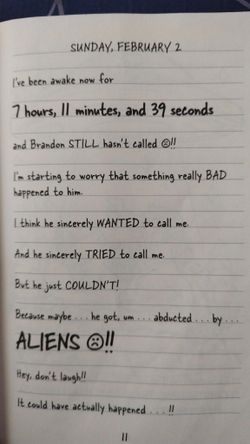 SUNDAY, FEBRUARY 2
I've been awake now for
7 hours, 11 minutes, and 39 seconds
and Brandon STILL hasn't called ☹!!
I'm starting to worry that something really BAD
happened to him.
I think he sincerely WANTED to call me.
And he sincerely TRIED to call me.
But he just COULDN'T!
Because maybe . . . he got, um . . . abducted . . . by . . .
ALIENS ☹!!
Hey, don't laugh!!
It could have actually happened . . . !!
11